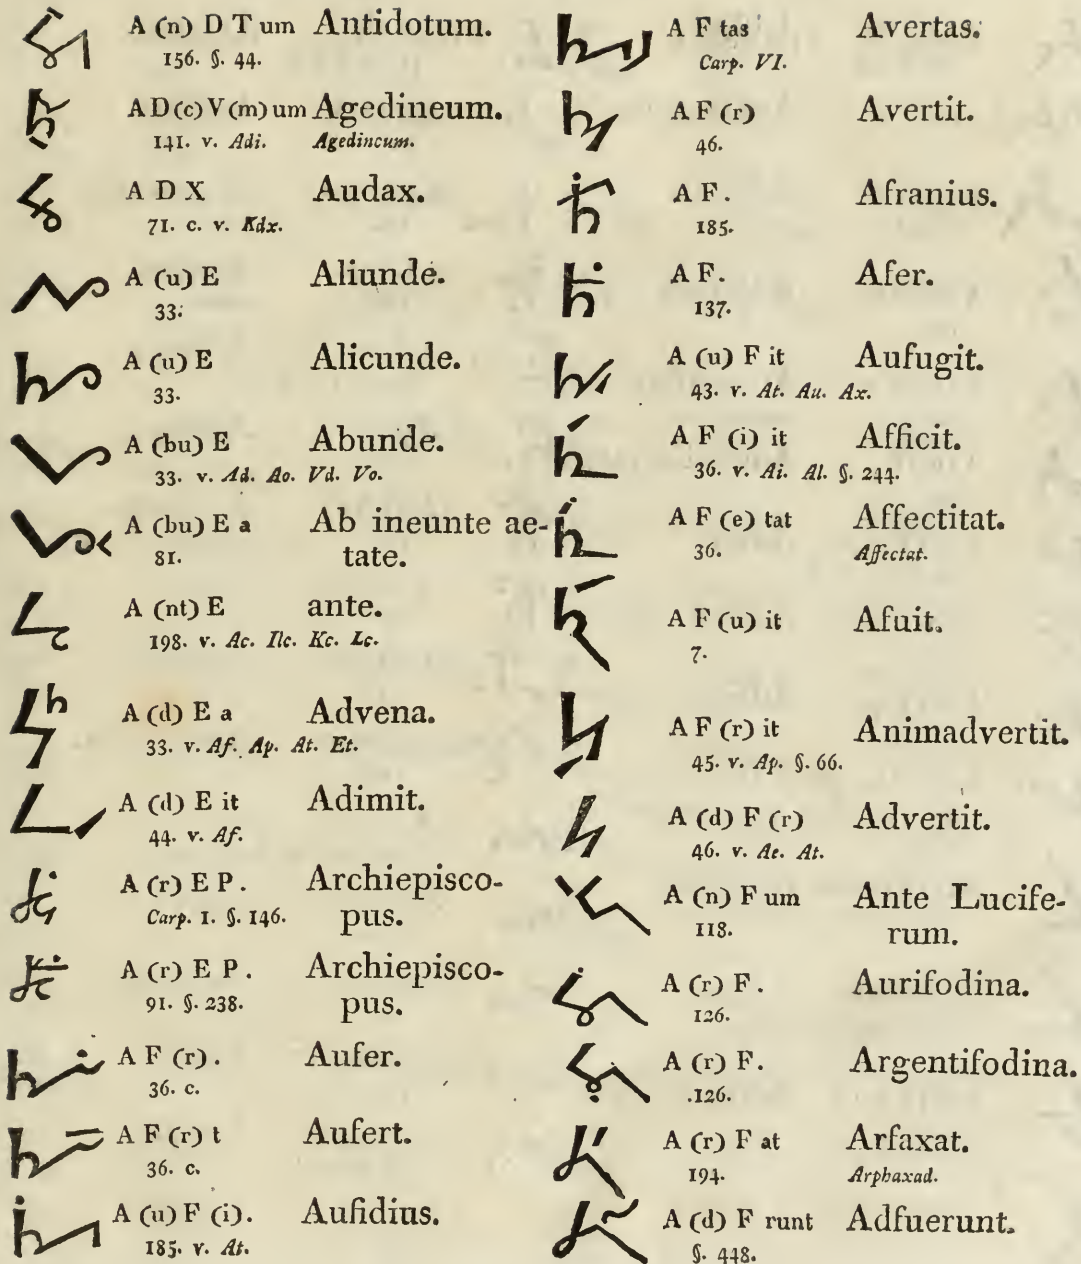 A (n) D T um Antidotum.
156. §. 44.
A D (c) V (m) um Agedineum.
141. v. Adi. Agedincum.
A D X Audax.
71. c. v. Kdx.
A (u) E Aliunde.
33.
A (u) E Alicunde.
33.
A (bu) E Abunde.
33. v. Ad. Ao. Vd. Vo.
A (bu) E a Ab ineunte ae-
81. tate.
A (nt) E ante.
198. v. Ac. Ilc. Kc. Lc.
A (d) E a Advena.
33. v. Af. Ap. At. Et.
A (d) E it Adimit.
44. v. Af.
A (r) E P. Archiepisco-
Carp. 1. §. 146. pus.
A (r) E P. Archiepisco-
91. §. 238. pus.
A F (r). Aufer.
36. c.
A F (r) t Aufert.
36. c.
A (u) F (i). Aufidius.
185. v. At.
A F tas Avertas.
Carp. VI.
A F (r) Avertit.
46.
A F. Afranius.
185.
A F. Afer.
137.
A (u) F it Aufugit.
43. v. At. Au. Ax.
A F (i) it Afficit.
36. v. Ai. Al. §. 244.
A F (e) tat Affectitat.
36. Affectat.
A F (u) it Afuit.
7.
A F (r) it Animadvertit.
45. v. Ap. §. 66.
A (d) F (r) Advertit.
46. v. Ae. At.
A (n) F um Ante Lucife-
118. rum.
A (r) F. Aurifodina.
126.
A (r) F. Argentifodina.
.126.
A (r) F at Arfaxat.
194. Arphaxad.
A (d) F runt Adfuerunt.
§. 448.